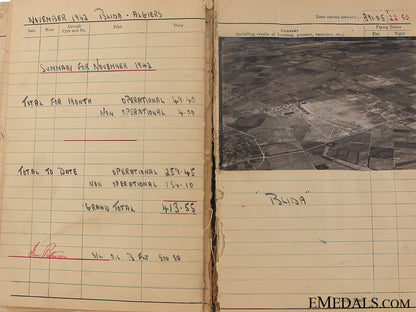 NOVEMBER 1942 BLIDA - ALGIERS
Date Hour Aircraft Type and No. Pilot Duty
SUMMARY FOR NOVEMBER 1942
TOTAL FOR MONTH OPERATIONAL
NON OPERATIONAL
TOTAL TO DATE OPERATIONAL 259.45
NON OPERATIONAL 154.10
GRAND TOTAL 413.55
S/L O.C.
Time carried forward:— 391.05 22.50
REMARKS Flying Times
(including results of bombing, gunnery, exercises, etc.) Day Night
"BLIDA"
EMEDALS.COM